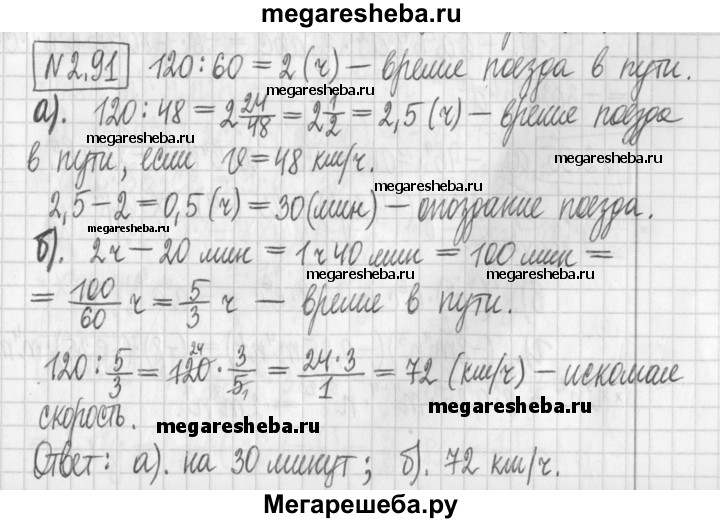 megaresheba.ru
N2.91 120:60=2(ч) – время поезда в пути.
а). 120:48=2 24/48=2 1/2=2,5(ч) – время поезда
megaresheba.ru
в пути, если v=48 км/ч.
megaresheba.ru
2,5–2=0,5(ч)=30(мин) – опоздание поезда.
megaresheba.ru
б). 2ч–20мин=1ч40мин=100мин=
megaresheba.ru megaresheba.ru
= 100/60 ч = 5/3 ч – время в пути.
120: 5/3 = 120 24 · 3/5 1 = 24·3/1 = 72 (км/ч) – искомая
megaresheba.ru
скорость.
megaresheba.ru
Ответ: а). на 30 минут; б). 72 км/ч.
Мегарешеба.ру